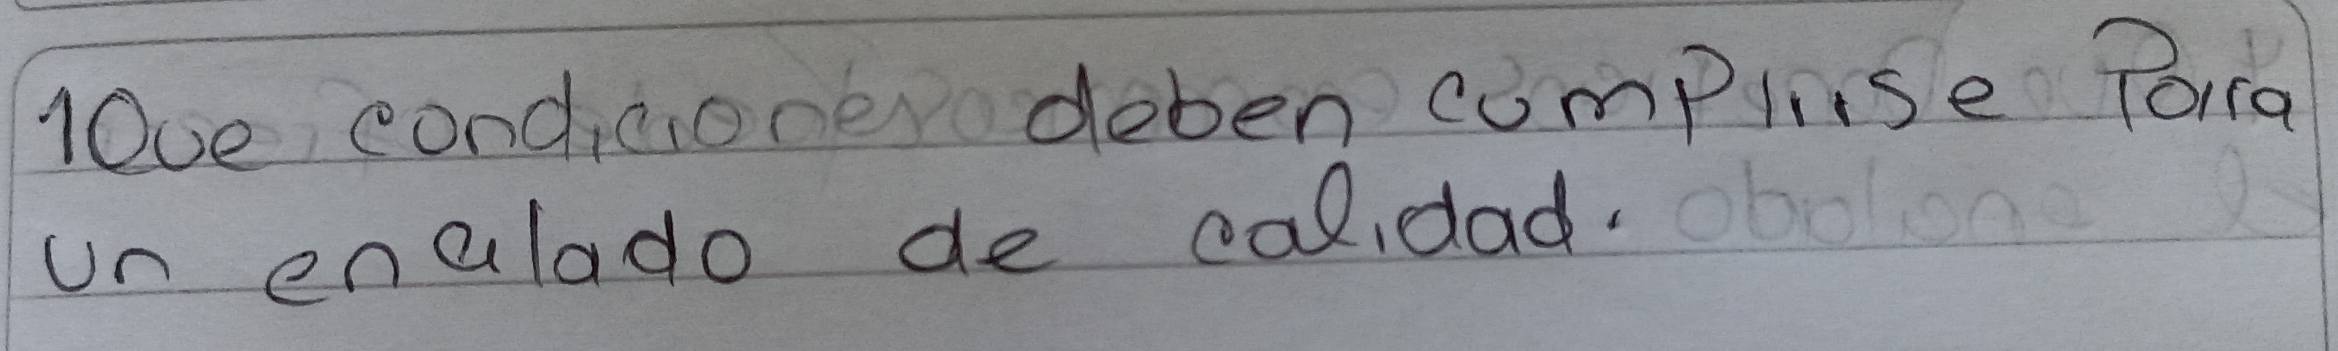 1Que condiciones deben complirse Para
un enalado de calidad.